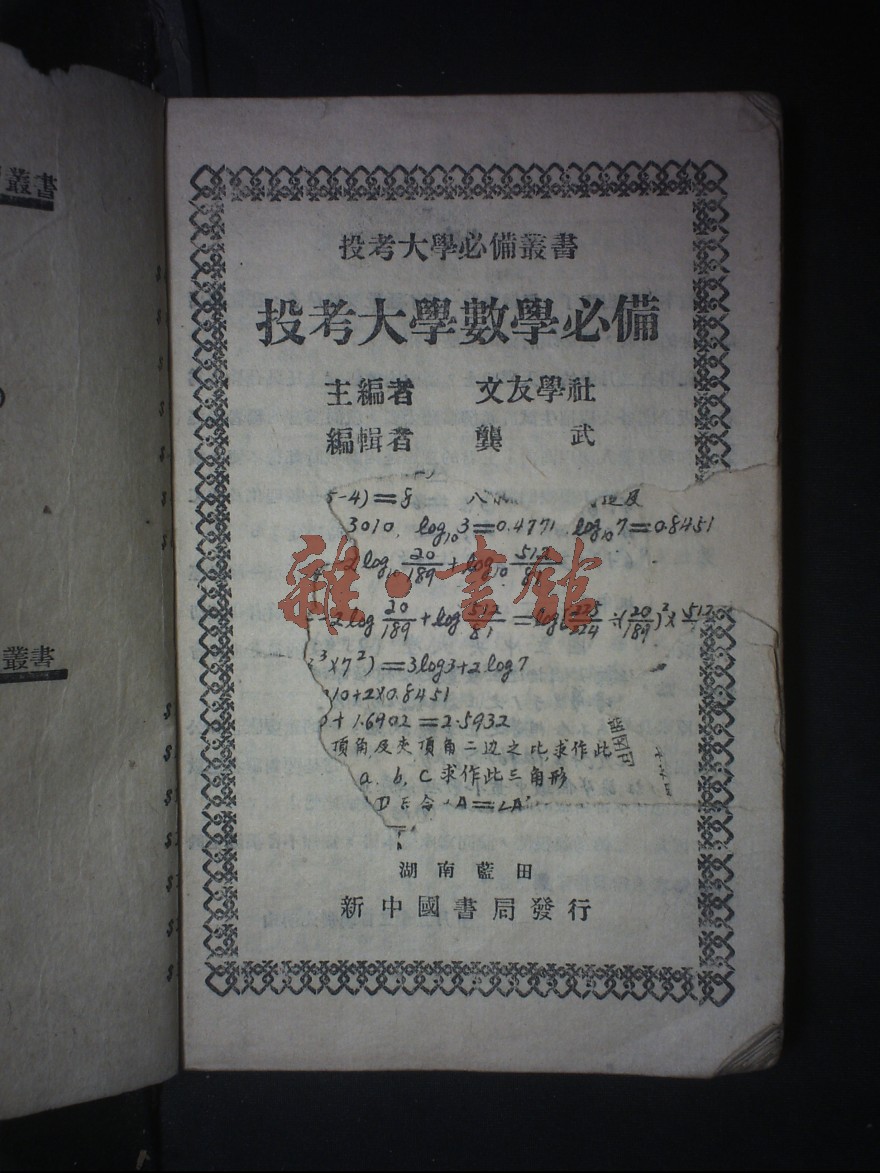 叢書
叢書
投考大學必備叢書
投考大學數學必備
主編者 文友學社
編輯者 龔 武
5-4)=8
3010, log₁₀3=0.4771 log₁₀7=0.8451
2log₁₀ 20/189 + log₁₀ 512/81
-2log 20/189 + log 512/81 = log[225/224 ÷ (20/189)² × 512
³×7²)=3log3+2log7
10+2×0.8451
+1.6902=2.5932
頂角及夾頂角二边之比,求作此
a, b, c 求作此三角形
雜·書館
湖南藍田
新中國書局發行